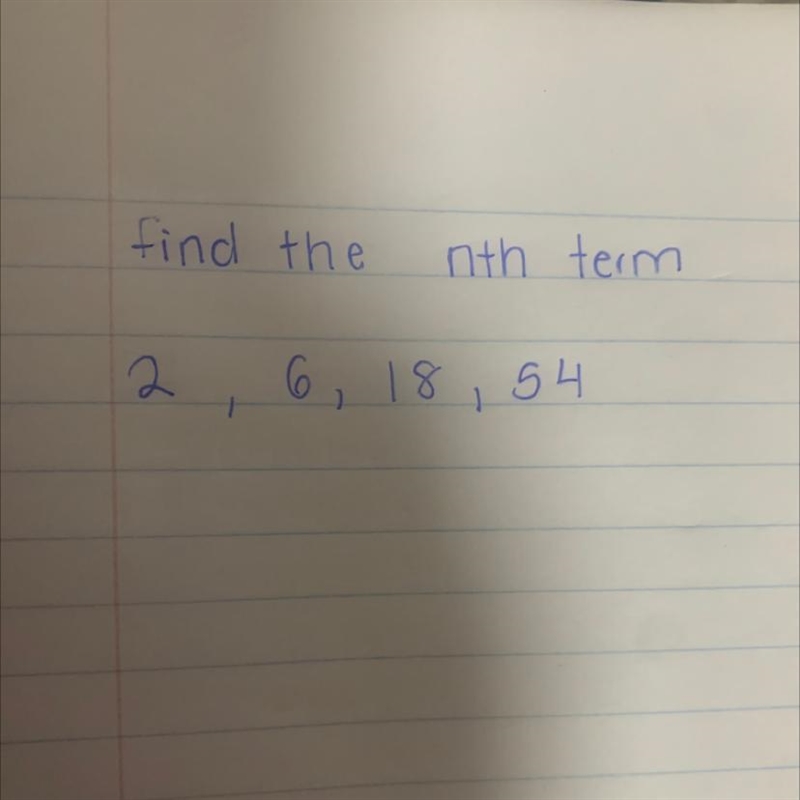 find the nth term
2, 6, 18, 54